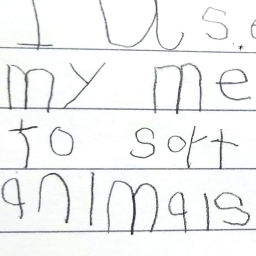 I us
my me
to sort
animals